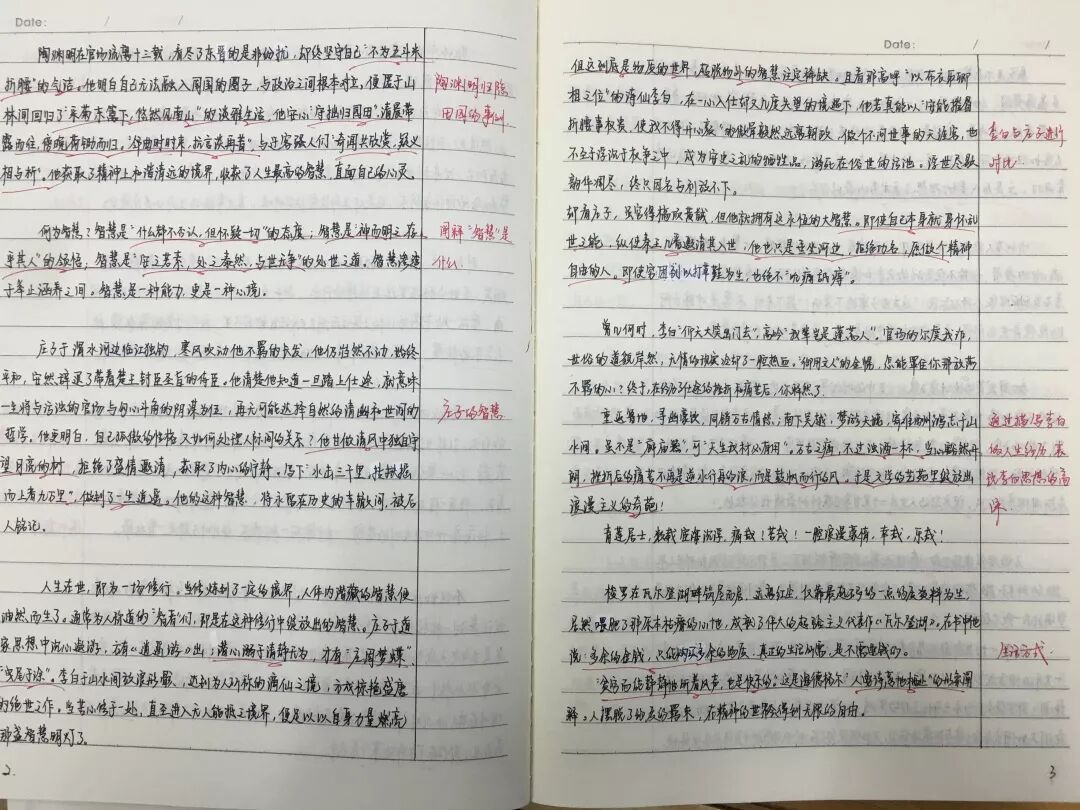 Date:
陶渊明在官场流离十三载，看尽了东晋的是非纷扰，却终坚守自己"不为五斗米
折腰"的气洁。他明白自己无法融入周围的圈子，与政治之间根本对立，便居于山
林间回归了"采菊东篱下，悠然见南山"的淡雅生活，他安心"守拙归园田"，清晨带
露而往，傍晚荷锄而归。"邻曲时时来，抗言谈再昔"，与迁客骚人们"奇闻共欣赏，疑义
相与析"。他获取了精神上和谐清远的境界，收获了人生最高的智慧，直面自己的心灵。
陶渊明归隐
田园的事例
何为智慧？智慧是"什么都不否认，但怀疑一切"的态度；智慧是"神而明之存
乎其人"的领悟；智慧是"安之若素，处之泰然，与世无争"的处世之道。智慧渗透
于举止涵养之间。智慧是一种能力，更是一种心境。
阐释"智慧"是
什么
庄子于渭水河边临江独钓，寒风吹动他不羁的长发，他仍岿然不动，始终
平和，安然辞退了带着楚王封臣圣旨的侍臣。他清楚他知道一旦踏上仕途，就意味
一生将与污浊的官场与勾心斗角的阴谋为伍，再无可能选择自然的清幽和世间的
哲学，他更明白，自己孤傲的性格又如何处理人际间的关系？他甘做清风中独自守
望月亮的树，拒绝了盛情邀请，获取了内心的宁静。乃下"水击三千里，抟扶摇
而上者九万里"，做到了一生逍遥。他的这种智慧，将永驻在历史的车辙间，被后
人铭记。
庄子的智慧
人生在世，即为一场修行。当修炼到了一定的境界，人体内潜藏的智慧便
油然而生了。通常为人称道的"智者"们，都是在这种修行中绽放出的智慧。庄子于道
家思想中沉心遨游，方有《逍遥游》出；潜心游于清静无为，才有"庄周梦蝶"、
"曳尾于涂"。李白于山水间放浪形骸，达到为人所称的谪仙之境，方成惊艳盛唐
的绝世之作。当苦心修于一处，直至进入无人能敌之境界，便足以以自身力量燃亮
那盏智慧明灯了。
2.
Date:
但这到底是物质的世界，超脱物外的智慧注定稀缺。且看那高呼"以布衣取卿
相之位"的谪仙李白，在一心入仕却又几度失望的境遇下，他若真能以"安能摧眉
折腰事权贵，使我不得开心颜"的傲骨毅然远离朝政，做个不问世事的无证居，也
不至于浮沉于权争之中，成为安史之乱的牺牲品，溺死在俗世的污池。浮世尽数
韵华凋尽，终只因名与利放不下。
李白与庄子进行
对比
却看庄子，虽穷得捕放黄戟，但他就拥有这永恒的大智慧。即使自己本身就身怀乱
世之能，纵使孝王几番邀请其入世；他也只是垂坐河边，拒绝功名，愿做个精神
自由的人。即使穷困到以打草鞋为生，也绝不"吮痈舐痔"。
曾几何时，李白"仰天大笑出门去"，高吟"我辈岂是蓬蒿人"。官场的尔虞我诈，
世俗的道貌岸然，无情的现实浇却了一腔热血。"御用文人"的金锁，怎能罩住你那放荡
不羁的心？终于，在经历了仕途的挫折和痛苦后，你释然了
重返蜀地，寻幽豪饮，同销万古情愁；南下吴越，梦游天姥，寄怀刺川游志于山
水间。虽不是"廊庙器"，可"天生我材必有用"。万古之痛，不过浊酒一杯，当心豁然开
朗，挫折后的痛苦不再是逆水行舟的浪，而是鼓帆而行的风，于是文学的苦苑里绽放出
浪漫主义的奇葩！
通过描写李白
的人生经历，表
现李白思想的高
洁
青莲居士，数载宦海沉浮，痛哉！苦哉！一腔浪漫豪情，幸哉，乐哉！
梭罗在瓦尔登湖畔筑屋而居，远离红尘，仅靠着足可罗的一点物质资料为生，
居然喂肥了那原本枯瘠的心地，成就了伟大的超验主义代表作《瓦尔登湖》。在书中他
说：多余的金钱，只能购买多余的物质，真正的生活所需，是不需要钱的。
生活方式
"贫穷而能静静地听着风声，也是快乐的；这是海德格尔"人，当诗意地栖止"的仪来阐
释。人摆脱了物质的羁束，在精神的世界得到无限的自由。
3